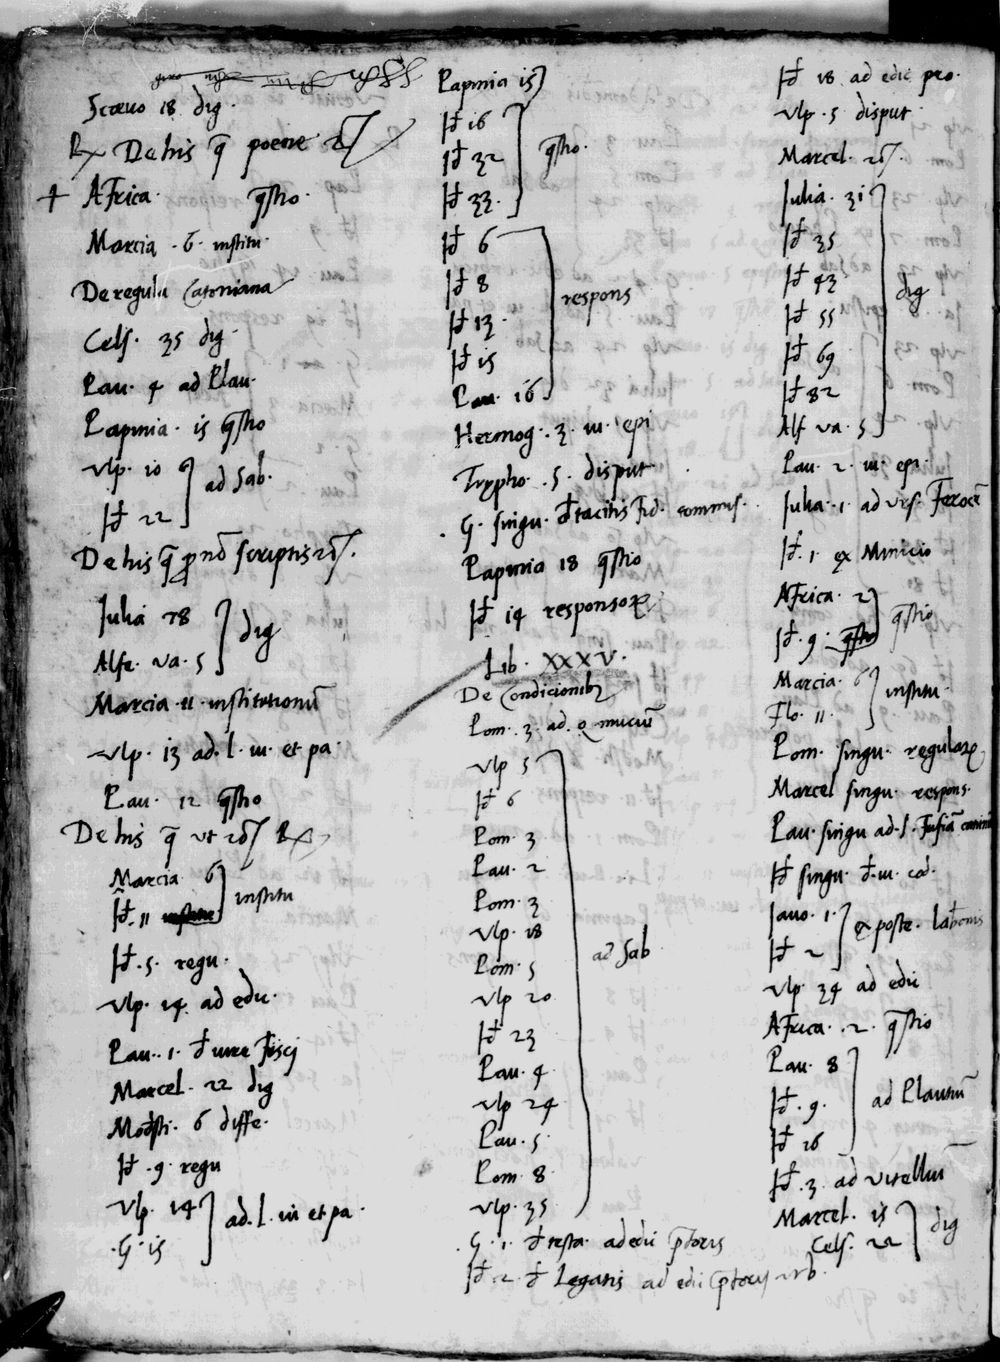 Scæuo 18 dig.
De his q̃ poene
Africa. q̃stio.
Marcia. 6. institu.
De regula Catoniana
Cels. 35 dig.
Pau. 4 ad Plau.
Papinia. 15 q̃stio
Vlp. 10
ad Sab.
Id 22
De his q̃ p̱ nõ scriptis
Iulia 78
dig
Alfe. va. 5
Marcia. 11. institutionũ
Vlp. 13 ad. l. iu. et pa.
Pau. 12 q̃stio
De his q̃ vt
Marcia 6
institu
Id. 11
Id. 5. regu.
Vlp. 14 ad edic.
Pau. 1. d̃ iure Fisci
Marcel. 22 dig
Modesti. 6 diffe.
Id. 9. regu
Vlp. 14
ad. l. iu et pa.
G. 15
Papinia 15
Id 16
q̃stio.
Id 32
Id 33.
Id 6
Id 8
respons
Id 13.
Id 15
Pau. 16
Hermog. 3. iu. epi
Trypho. 5. disput
G. singu. d̃ tacitis Fid. commis.
Papinia 18 q̃stio
Id 14 responsoꝝ
Lib. XXXV.
De Condicionibꝫ
Pom. 3. ad. Q mucium
Vlp 5
Id 6
Pom. 3
Pau. 2
Pom. 3
Vlp. 18
ad Sab
Pom. 5
Vlp 20
Id 23
Pau. 4.
Vlp 24
Pau. 5.
Pom. 8
Vlp. 35
G. 1. d̃ testa. ad edic p̃toris
Id 2. d̃ Legatis ad edic p̃toris urb.
Id 18 ad edic pro.
Vlp. 5 disput.
Marcel.
Iulia. 31
Id 35
Id 43
dig
Id 55
Id 69
Id 82
Alf va. 5
Pau. 2. iu. epi.
Iulia. 1. ad urs. Ferocẽ
Id. 1. ex Minicio
Africa. 2
q̃stio
Id. 9. q̃stio
Marcia. 6
institu.
Flo. 11.
Pom. singu. regulaꝝ
Marcel singu. respons.
Pau. singu ad. l. Fufiã caninia
Id singu. d̃. iu. cod.
Iauo. 1.
ex poste. labeonis
Id 2
Vlp. 34 ad edic
Africa. 2. q̃stio
Pau. 8
Id. 9.
ad Plautiũ
Id 16
Id. 3. ad vitelliũ
Marcel. 15
dig
Cels. 22